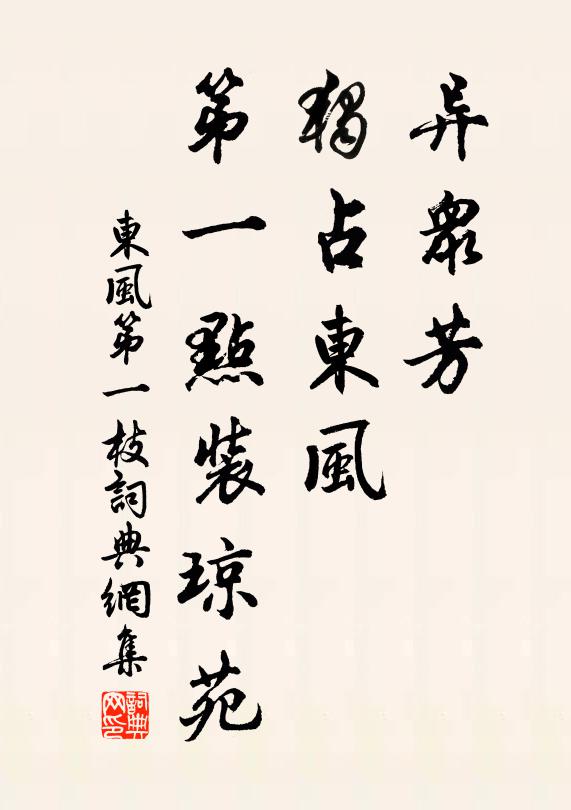 异眾芳
獨占東風
第一點裝琼苑
東風第一枝詞典網集
詞典网印